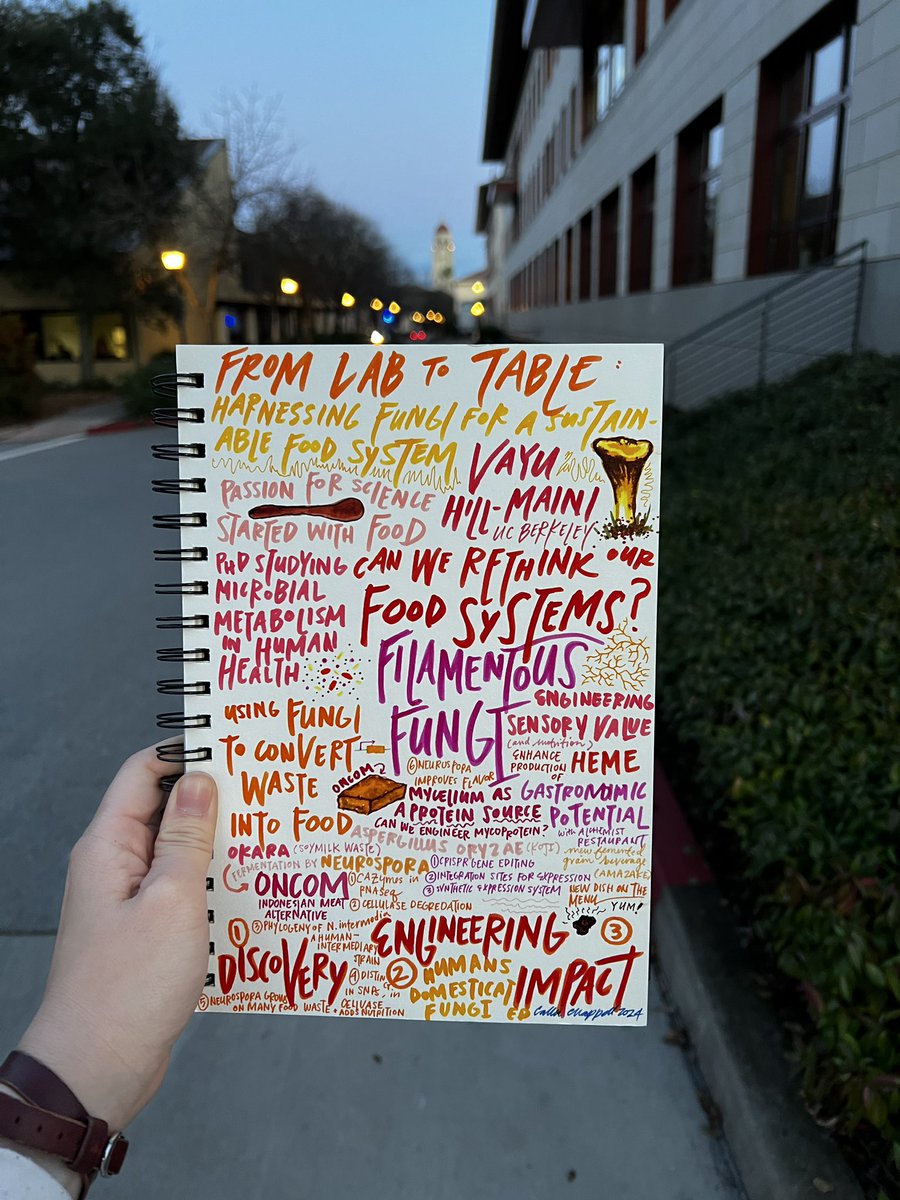 FROM LAB TO TABLE:
HARNESSING FUNGI FOR A SUSTAIN-
ABLE FOOD SYSTEM
VAYU
HILL-MAINI
UC BERKELEY
PASSION FOR SCIENCE
STARTED WITH FOOD
PHD STUDYING
MICROBIAL
METABOLISM
IN HUMAN
HEALTH
CAN WE RETHINK OUR
FOOD SYSTEMS?
FILAMENTOUS
FUNGI
USING FUNGI
TO CONVERT
WASTE
INTO FOOD
ONCOM
ENGINEERING
SENSORY VALUE
(and nutrition)
ENHANCE
PRODUCTION
OF
HEME
⑥ NEUROSPORA
IMPROVES FLAVOR
MYCELIUM AS
A PROTEIN SOURCE
CAN WE ENGINEER MYCOPROTEIN?
GASTRONOMIC
POTENTIAL
with ALCHEMIST
RESTAURANT
new fermented
grain beverage
(AMAZAKE)
NEW DISH ON THE
MENU
YUM!
ASPERGILLUS ORYZAE (KOJI)
① CRISPR GENE EDITING
② INTEGRATION SITES FOR EXPRESSION
③ SYNTHETIC EXPRESSION SYSTEM
OKARA (SOYMILK WASTE)
FERMENTATION BY NEUROSPORA
ONCOM
INDONESIAN MEAT
ALTERNATIVE
① CAZymes in
RNAseq
② CELLULASE DEGREDATION
③ PHYLOGENY OF N. intermedia
A HUMAN-
INTERMEDIARY
STRAIN
④ DISTINCT
IN SNPs, in
CELLULASE
⑤ NEUROSPORA GROWS
ON MANY FOOD WASTE + ADDS NUTRITION
①
DISCOVERY
ENGINEERING
②
HUMANS
DOMESTICAT
FUNGI ED
③
IMPACT
Callie Chappell 2024